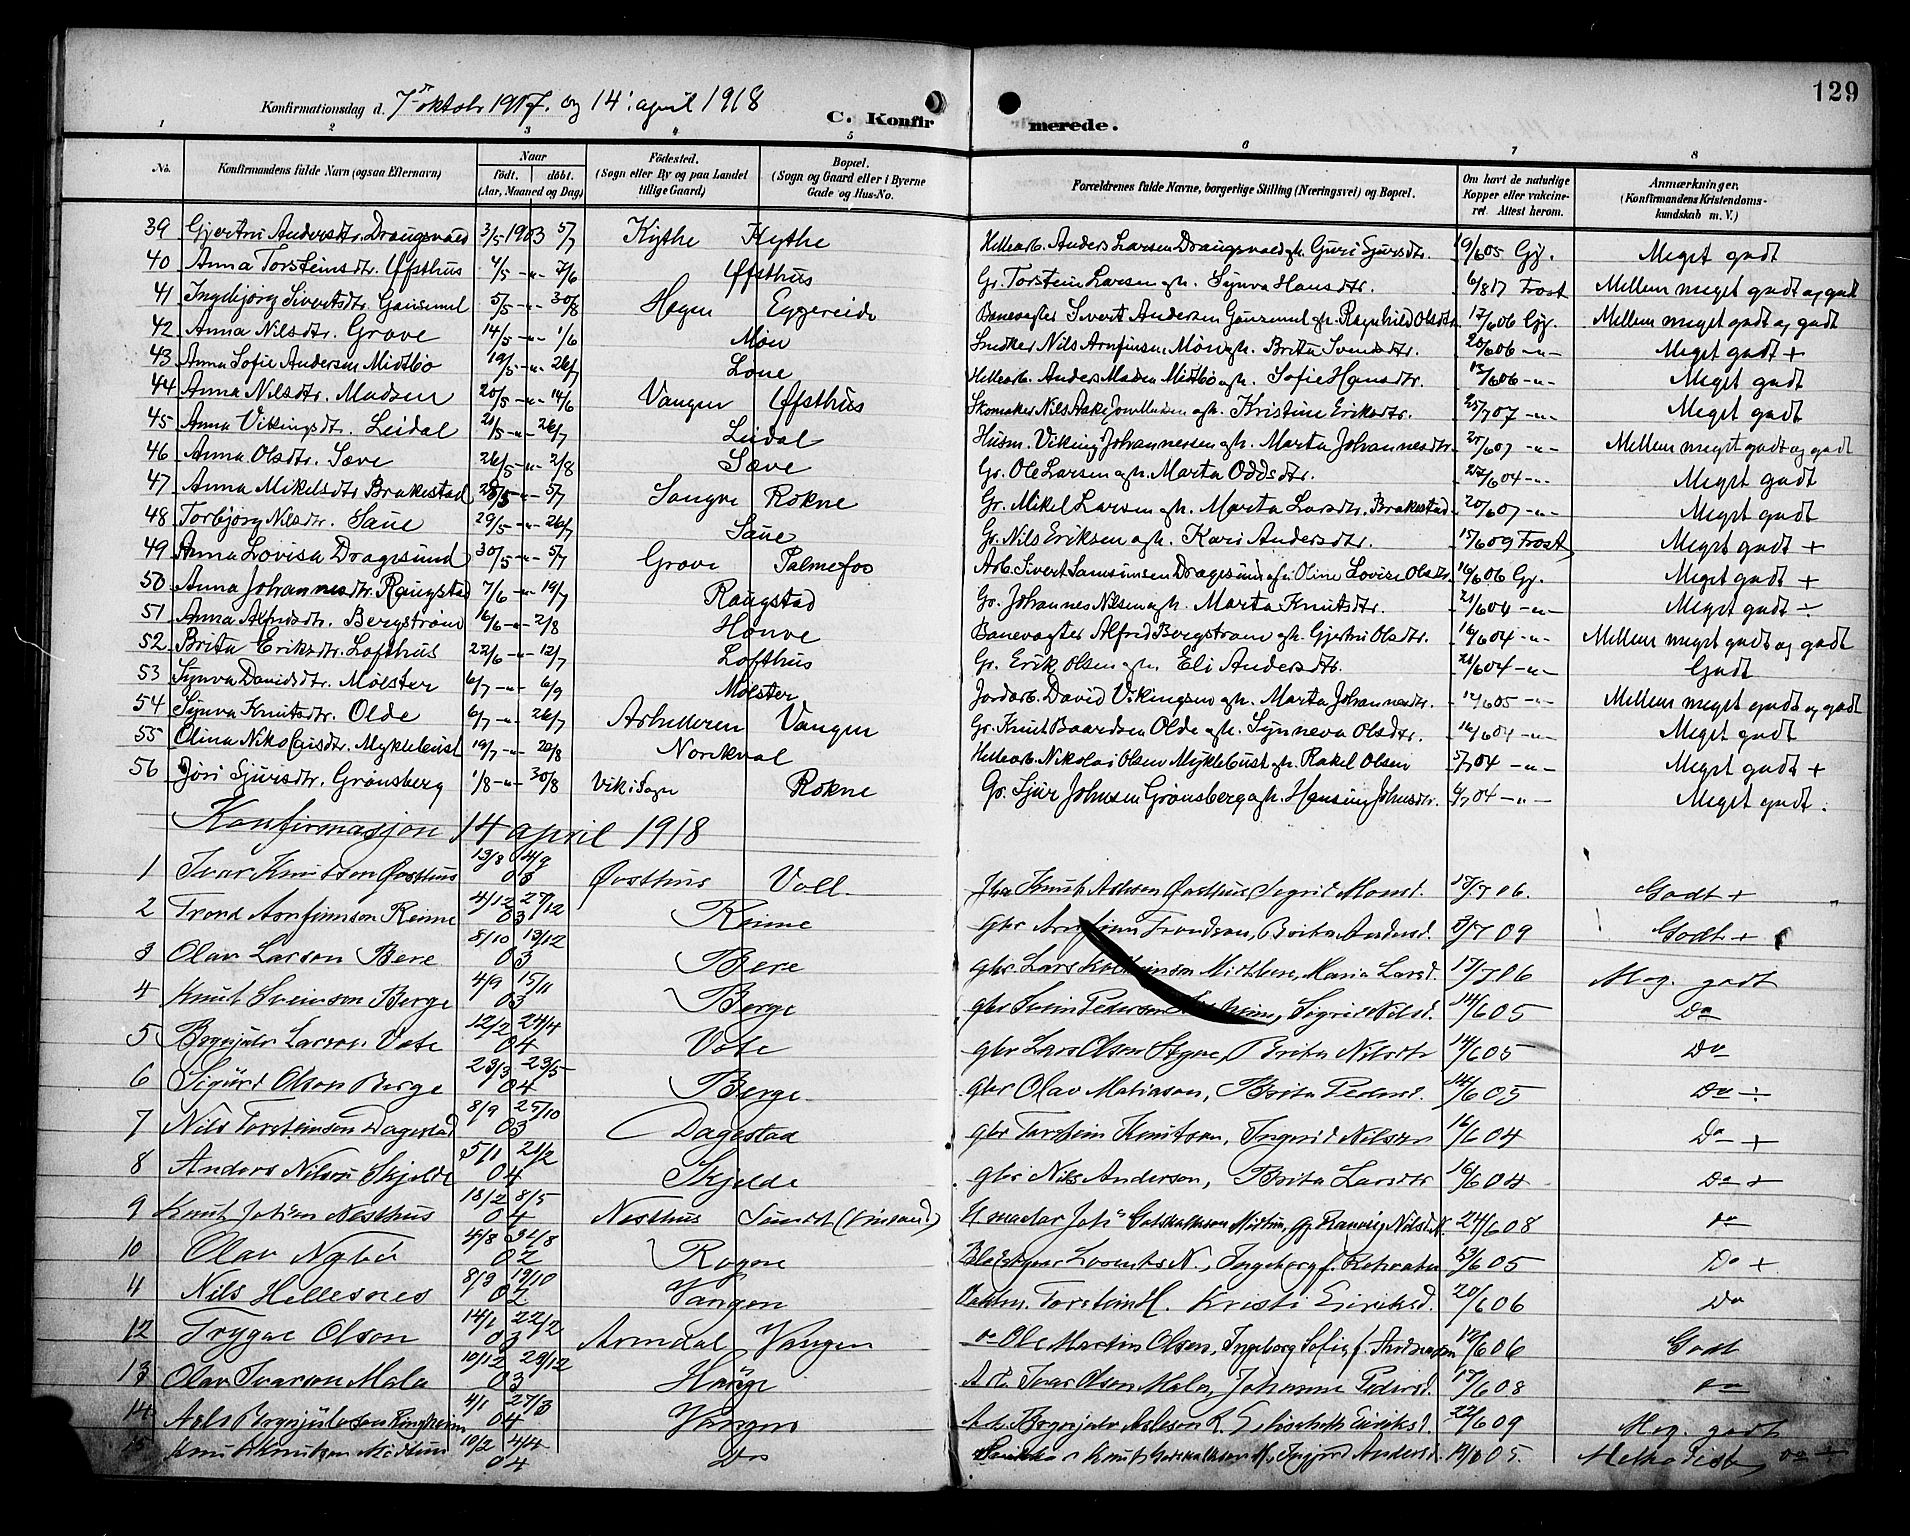 129
Konfirmationsdag d. 7de oktob 1917. og 14. april 1918
C. Konfirmerede.
1 2 3 4 5 6 7 8
No. Konfirmandens fulde Navn (ogsaa Efternavn) Naar født. døbt. (Aar, Maaned og Dag) Fødested. (Sogn eller By og paa Landet tillige Gaard) Bopæl. (Sogn og Gaard eller i Byerne Gade og Hus-No. Forældrenes fulde Navne, borgerlige Stilling (Næringsvei) og Bopæl. Om havt de naturlige Kopper eller vaccineret. Attest herom. Anmærkninger. (Konfirmandens Kristendomskundskab m. V.)
39 Gjertru Andersdtr. Draugsvold 3/5 1903 5/7 Kythe Kythe Hellearb. Anders Larsen Draugsvold gh. Guri Sjursdtr. 19/6 05 Gj. Meget godt
40 Anna Torsteinsdtr. Øfsthus 4/5 -"- 7/6 Øfsthus Gr. Torstein Larsen gh. Synva Hansdtr. 6/8 17 Frost Mellem meget godt og godt
41 Ingebjørg Sivertsdtr. 5/5 -"- 30/8 Hagen Eggereide Banevogter Sivert Andersen gh. Ragnhild Olsdtr. 17/6 06 Gj. Mellem meget godt og godt
42 Anna Nilsdtr. Grove 14/5 -"- 1/6 Møn Snedker Nils Arnfinsen Møn gh. Brita Svendsdtr. 20/6 06 -"- Meget godt +
43 Anna Sofie Andersen Midtbø 19/5 -"- 26/7 Lone Hellearb. Anders Madsen Midtbø gh. Sofie Hansdtr. 13/6 06 -"- Meget godt
44 Anna Nilsdtr. Madsen 20/5 -"- 14/6 Vangen Øfsthus Skomaker Nils Madsen gh. Kristine Eriksdtr. 25/7 07 -"- Meget godt
45 Anna Vikingsdt. Leidal 21/5 -"- 26/7 Leidal Husm. Viking Johannessen gh. Marta Johannesdtr. 25/6 07 -"- Mellem meget godt og godt
46 Anna Olsdtr. Sæve 26/5 -"- 2/8 Sæve Gr. Ole Larsen gh. Marta Oddsdtr. 27/6 04 -"- Meget godt
47 Anna Mikelsdtr Brakestad 28/5 -"- 5/7 Sangve Rokne Gr. Mikel Larsen gh. Marita Larsdtr. Brakestad 20/6 07 -"- Meget godt
48 Torbjørg Nilsdtr. Saue 29/5 -"- 26/7 Saue Gr. Nils Eriksen gh. Kari Andersdtr. 15/6 09 Frost Meget godt +
49 Anna Lovisa Dragesund 30/5 -"- 5/7 Grove Palmefos Arb. Sivert Samsonsen Dragesund Oline Lovise Olsdtr. 16/6 06 Gj. Meget godt +
50 Anna Johannesdtr. Raugstad 7/6 -"- 19/7 Raugstad Gr. Johannes Nilsen gh. Marta Knutsdtr. 21/6 04 -"- Meget godt ÷
51 Anna Alfredsdtr. Bergstrøm 16/6 -"- 2/8 Honve Banevogter Alfred Bergstrøm gh. Gjertru Olsdtr. 16/6 04 -"- Mellem meget godt og godt
52 Brita Eriksdtr. Lofthus 22/6 -"- 12/7 Lofthus Gr. Erik Olsen gh. Eli Andersdtr. 21/6 04 -"- Godt
53 Synva Davidsdtr. Mølster 6/7 -"- 6/9 Mølster Jordarb. David Vikingsen gh. Marta Johannesdtr. 12/6 05 -"- Mellem meget godt og godt
54 Synva Knutsdtr. Olde 6/7 -"- 26/7 Vangen Gr. Knut Baardsen Olde gh. Synneva Olsdtr. 16/6 04 -"- Meget godt
55 Olina Nikolaisdtr. Myklebust 19/7 -"- 20/8 Norekval Hellearb. Nikolai Olsen Myklebust gh. Rakel Olsen 5/7 04 -"- Meget godt +
56 Jori Sjursdtr. Grønsberg 1/8 -"- 30/8 Vik i Sogn Rokne Gr. Sjur Johnsen Grønsberg gh. Hansine Johnsdtr. 4/7 04 -"- Meget godt ÷
Konfirmasjon 14 april 1918
1 Ivar Knutson Øvsthus 13/8 14/9 03 Øvsthus Voll Knut Øvsthus Sigrid Monsd. 17/7 06. Godt +
2 Trond Arnfinnson Reime 4/12 27/12 03 Reime gbr Arnfinn Trondson, Brita Andersd. 3/7 09 Godt +
3 Olav Larson Bere 8/10 13/12 03 Bere gbr Lars Midbere, Maria Larsd. 17/7 06 Meg. godt
4 Knut Sveinson Berge 4/9 15/11 03 Berge gbr Svein Pederson, Sigrid Nilsd. 14/6 05 Do
5 Brynjulv Larson Vete 12/2 24/4 04 Vete gbr Lars Olson Styve, Brita Nilsdtr 14/6 05 Do
6 Sigurd Olson Berge 23/3 23/5 04 Berge gbr Olav Matiason, Brita Pedersd. 14/6 05 Do ÷
7 Nils Torsteinson Dagestad 8/9 25/10 03 Dagestad gbr Torstein Knutson, Ingerid Nilsdtr 16/6 04 Do +
8 Anders Nilson Skjelde 5/1 21/2 04 Skjelde gbr Nils Anderson, Brita Larsdtr 16/6 04 Do +
9 Knut Nesthus 13/2 8/5 04 Nesthus 24/6 08 Do
10 Olav Nybø 4/8 31/8 02 Rogne Ingeborg f. 23/6 05 Do +
11 Nils Hellesnes 8/9 19/10 02 Vangen Torstein H. Kristi Eiriksd. 20/6 06 Do
12 Trygve Olson 14/1 22/2 03 Arendal Vangen do Ole Martin Olsen, Ingeborg Sofie f. 12/6 06 Godt
13 Olav Ivarson Mala 10/12 29/12 03 Hauge Arb Ivar Olson Mala, Johanna Pedersd. 17/6 08 do
14 Brynjulvson Ringheim 4/1 27/3 04 Vangen Brynjulv R. Elisabeth Eiriksd. 22/6 09 Meg. godt
15 Knut Knutson Midtun 10/2 4/4 04 Do Knut M., Ingjerd Andersd. 19/6 05. Metodist do ÷